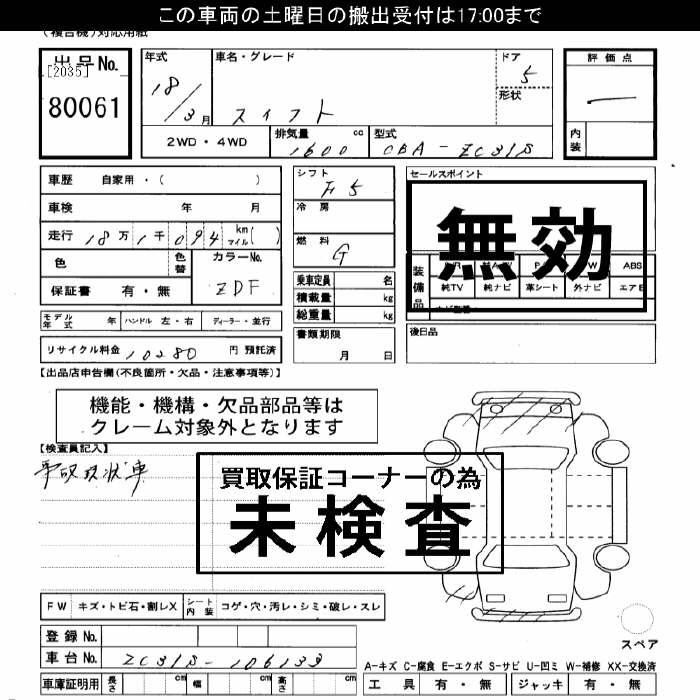 この車両の土曜日の搬出受付は17:00まで
(複合機)対応用紙
出品No.
[2035]
80061
年式
18/3月
車名・グレード
スイフト
ドア
5
形状
評価点
内装
2WD・4WD
排気量
1600 cc
型式
CBA-ZC31S
車歴 自家用・( )
車検 年 月
走行 18万1千094 km マイル( )
色
色替
カラーNo.
ZDF
保証書 有・無
モデル年式 年
ハンドル 左・右
ディーラー・並行
リサイクル料金 10280 円 預託済
シフト
F5
冷房
燃料
G
乗車定員 名
積載量 kg
総重量 kg
書類期限
月 日
セールスポイント
無効
装備品
ABS
純TV
純ナビ
革シート
外ナビ
エアB
後日品
【出品店申告欄(不良箇所・欠品・注意事項等)】
機能・機構・欠品部品等は
クレーム対象外となります
【検査員記入】
事故現状車
買取保証コーナーの為
未検査
FW キズ・トビ石・割レX
シート内装 コゲ・穴・汚レ・シミ・破レ・スレ
登録No.
車台No. ZC31S-106133
車庫証明用 長さ cm 幅 cm 高さ cm
スペア
A-キズ C-腐食 E-エクボ S-サビ U-凹ミ W-補修 XX-交換済
工具 有・無 ジャッキ 有・無